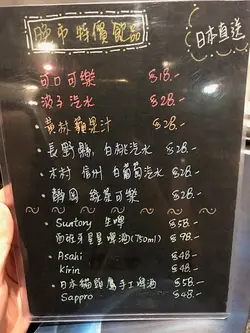 晚市特價飲品
日本直送
可口可樂 $18.-
波子汽水 $28.-
青林蘋果汁 $28.-
長野縣,白桃汽水 $28.-
木村 信州 白葡萄汽水 $28.-
靜岡 綠茶可樂 $28.-
Suntory 生啤 $58.-
西班牙星星啤酒(750ml) $98.-
Asahi $48.-
Kirin $48.-
日本貓頭鷹手工啤酒 $58.-
Sappro $48.-